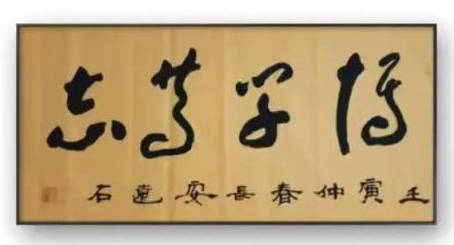 博学笃志
壬寅仲春長安遠石